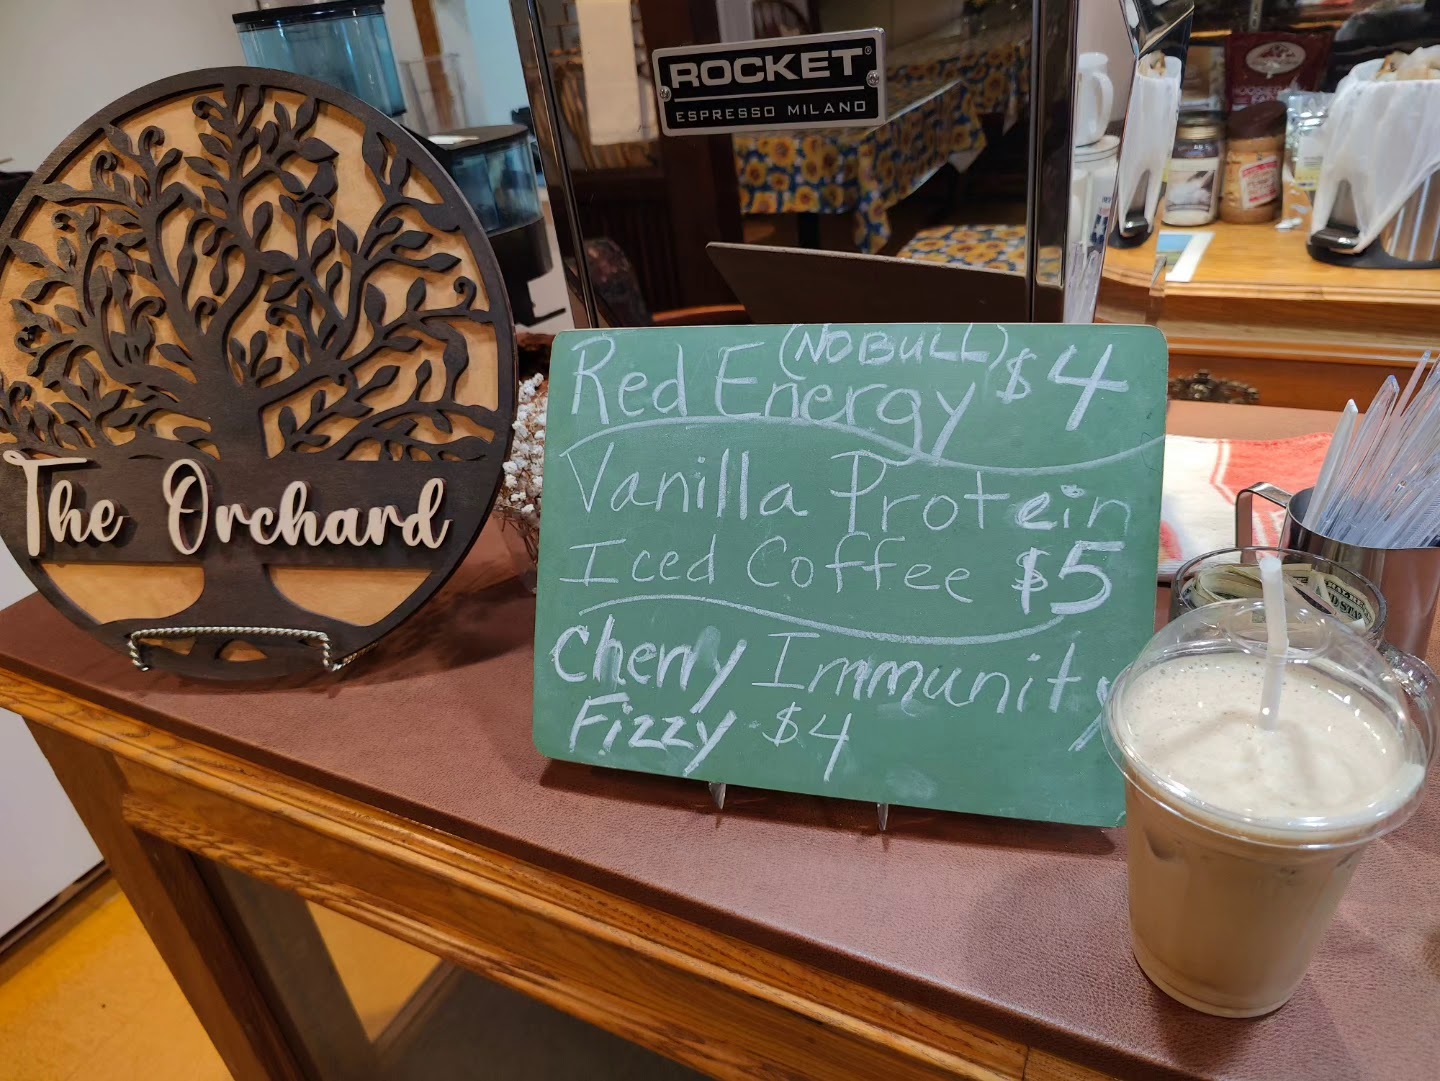 ROCKET
ESPRESSO MILANO
The Orchard
(NO BULL)
Red Energy $4
Vanilla Protein
Iced Coffee $5
Cherry Immunity
Fizzy - $4